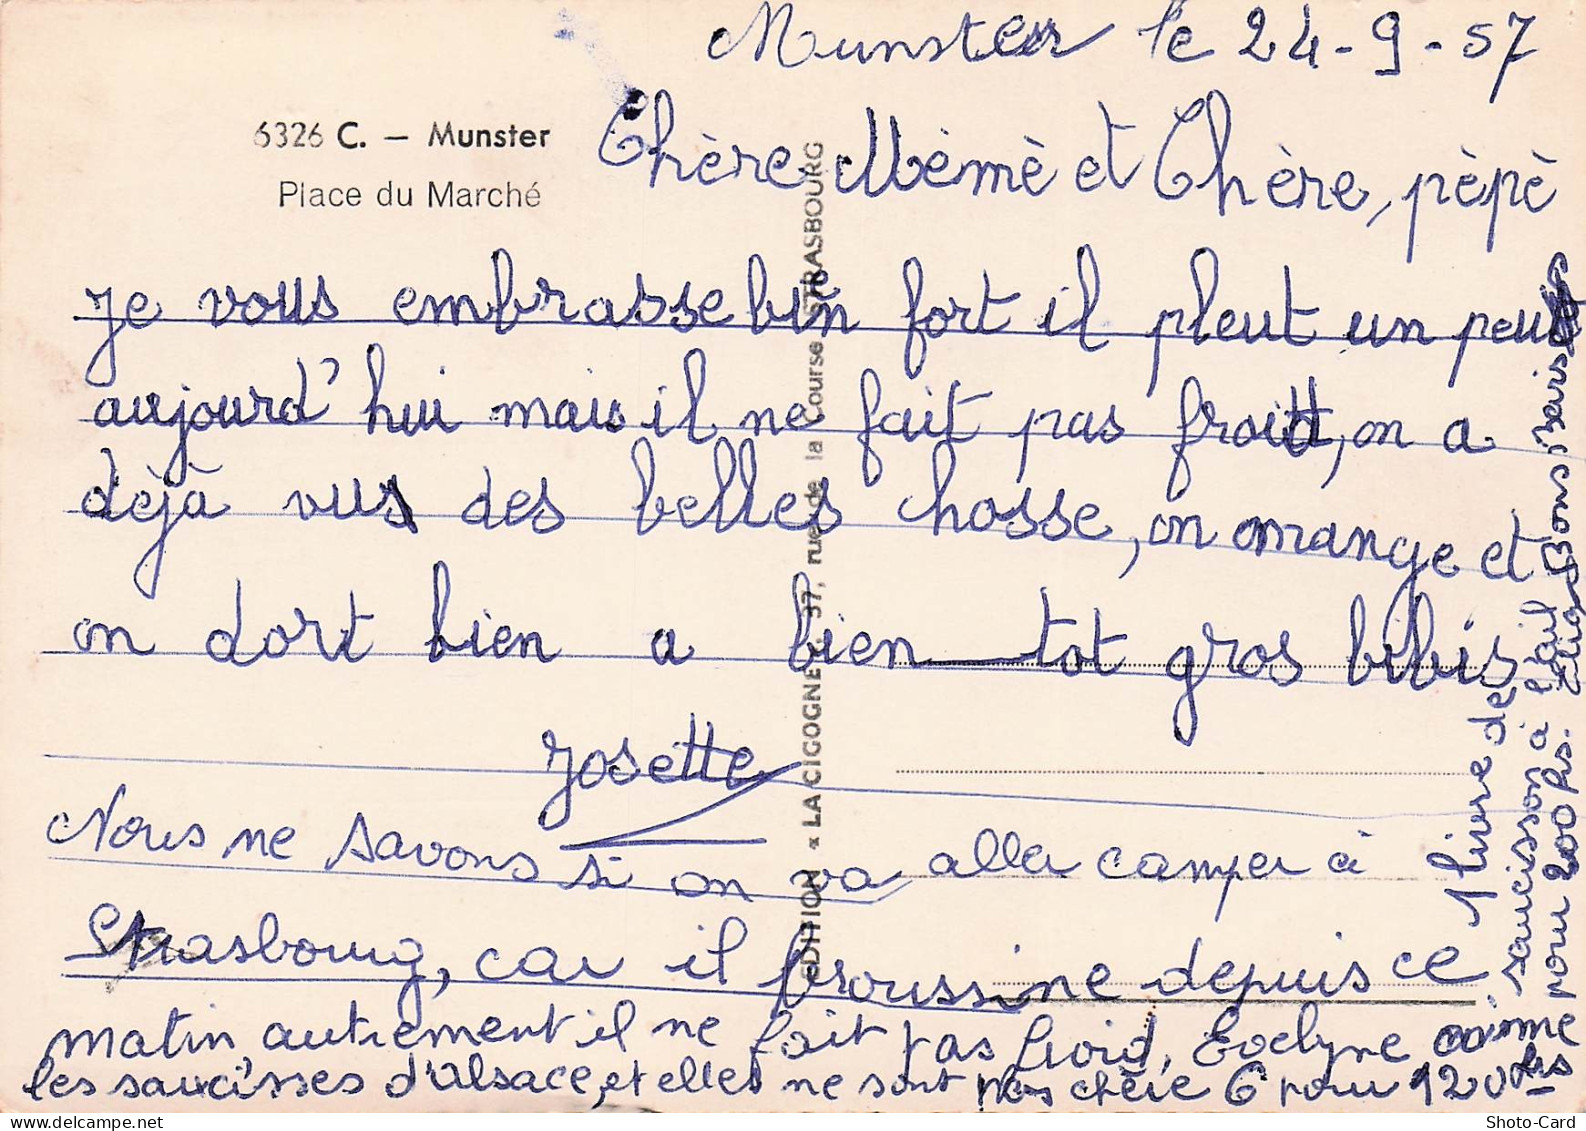 Munster le 24-9-57
6326 C. — Munster
Place du Marché
Chère Mémè et Chère, pèpè
je vous embrasse bin fort il pleut un peu
aujourd'hui mais il ne fait pas froitt, on a
déjà vus des belles chosse, on mange et
on dort bien a bien tot gros bibis
Josette
Nous ne savons si on va aller camper à
Strasbourg, car il broussine depuis ce
matin, autrement il ne fait pas froid, Evelyne aime
les saucisses d'Alsace, et elles ne sont pas chère 6 pour 120 frs
1 livre de
saucisson à l'ail
pour 200 frs.
Bons baisers
EDITION « LA CIGOGNE », 37, rue de la Course STRASBOURG
Shoto-Card